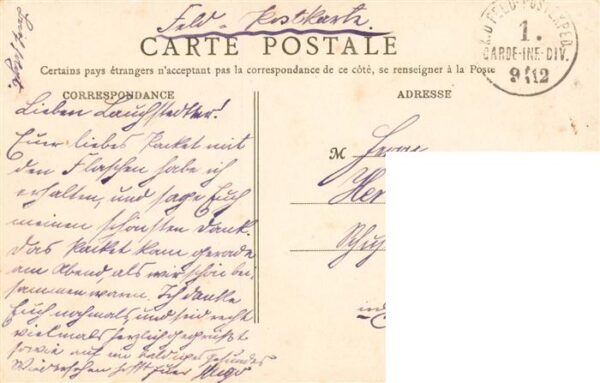 Feld-Postkarte.
CARTE POSTALE
Certains pays étrangers n'acceptant pas la correspondance de ce côté, se renseigner à la Poste
K.D.FELD-POSTEXPED.
1.
GARDE-INF.-DIV.
9/12
CORRESPONDANCE
ADRESSE
Lieben Lauchstedter!
Euer liebes Packet mit
den Flaschen habe ich
erhalten, und sage Euch
meinen schönsten Dank.
Das Packet kam gerade
am Abend, als wir schön bei-
sammen waren. Ich danke
Euch nochmals und seid recht
vielmals herzlich gegrüßt
sowie auf ein baldiges gesundes
Wiedersehen hofft Euer Hugo
M Herrn
Her